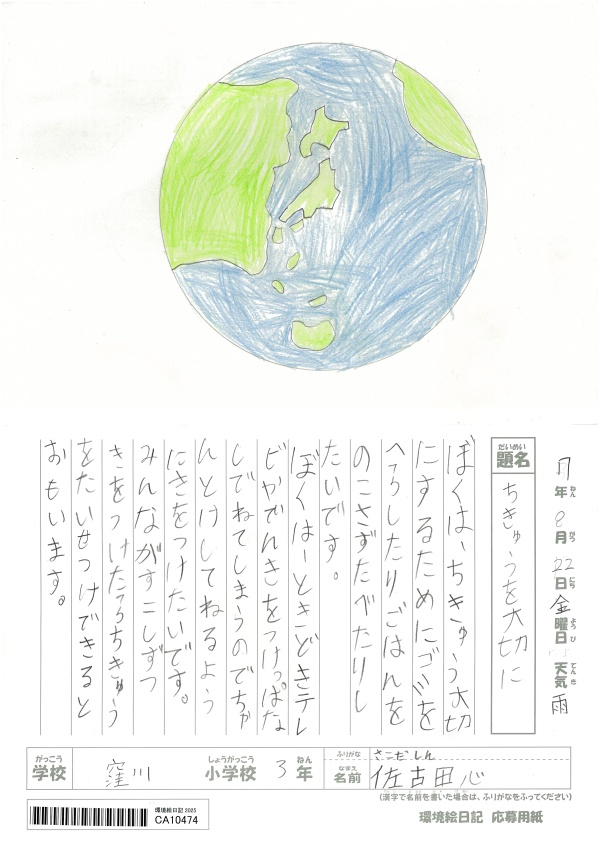 年ねん 8月がつ 22日にち 金曜日ようび 天気てんき 雨
だいめい
題名
ちきゅうを大切に
ぼくは、ちきゅう大切
にするためにゴミを
へらしたりごはんを
のこさずたべたりし
たいです。
ぼくはーときどきテレ
ビやでんきをつけっぱな
しでねてしまうのでちゃ
んとけしてねるよう
にきをつけたいです。
みんながすこしずつ
きをつけたらちきゅう
をたいせつけできると
おもいます。
がっこう しょうがっこう ねん
学校 窪川 小学校 3年
ふりがな さこだしん
なまえ
名前 佐古田心
(漢字で名前を書いた場合は、ふりがなをふってください)
環境絵日記 2025
CA10474
環境絵日記 応募用紙